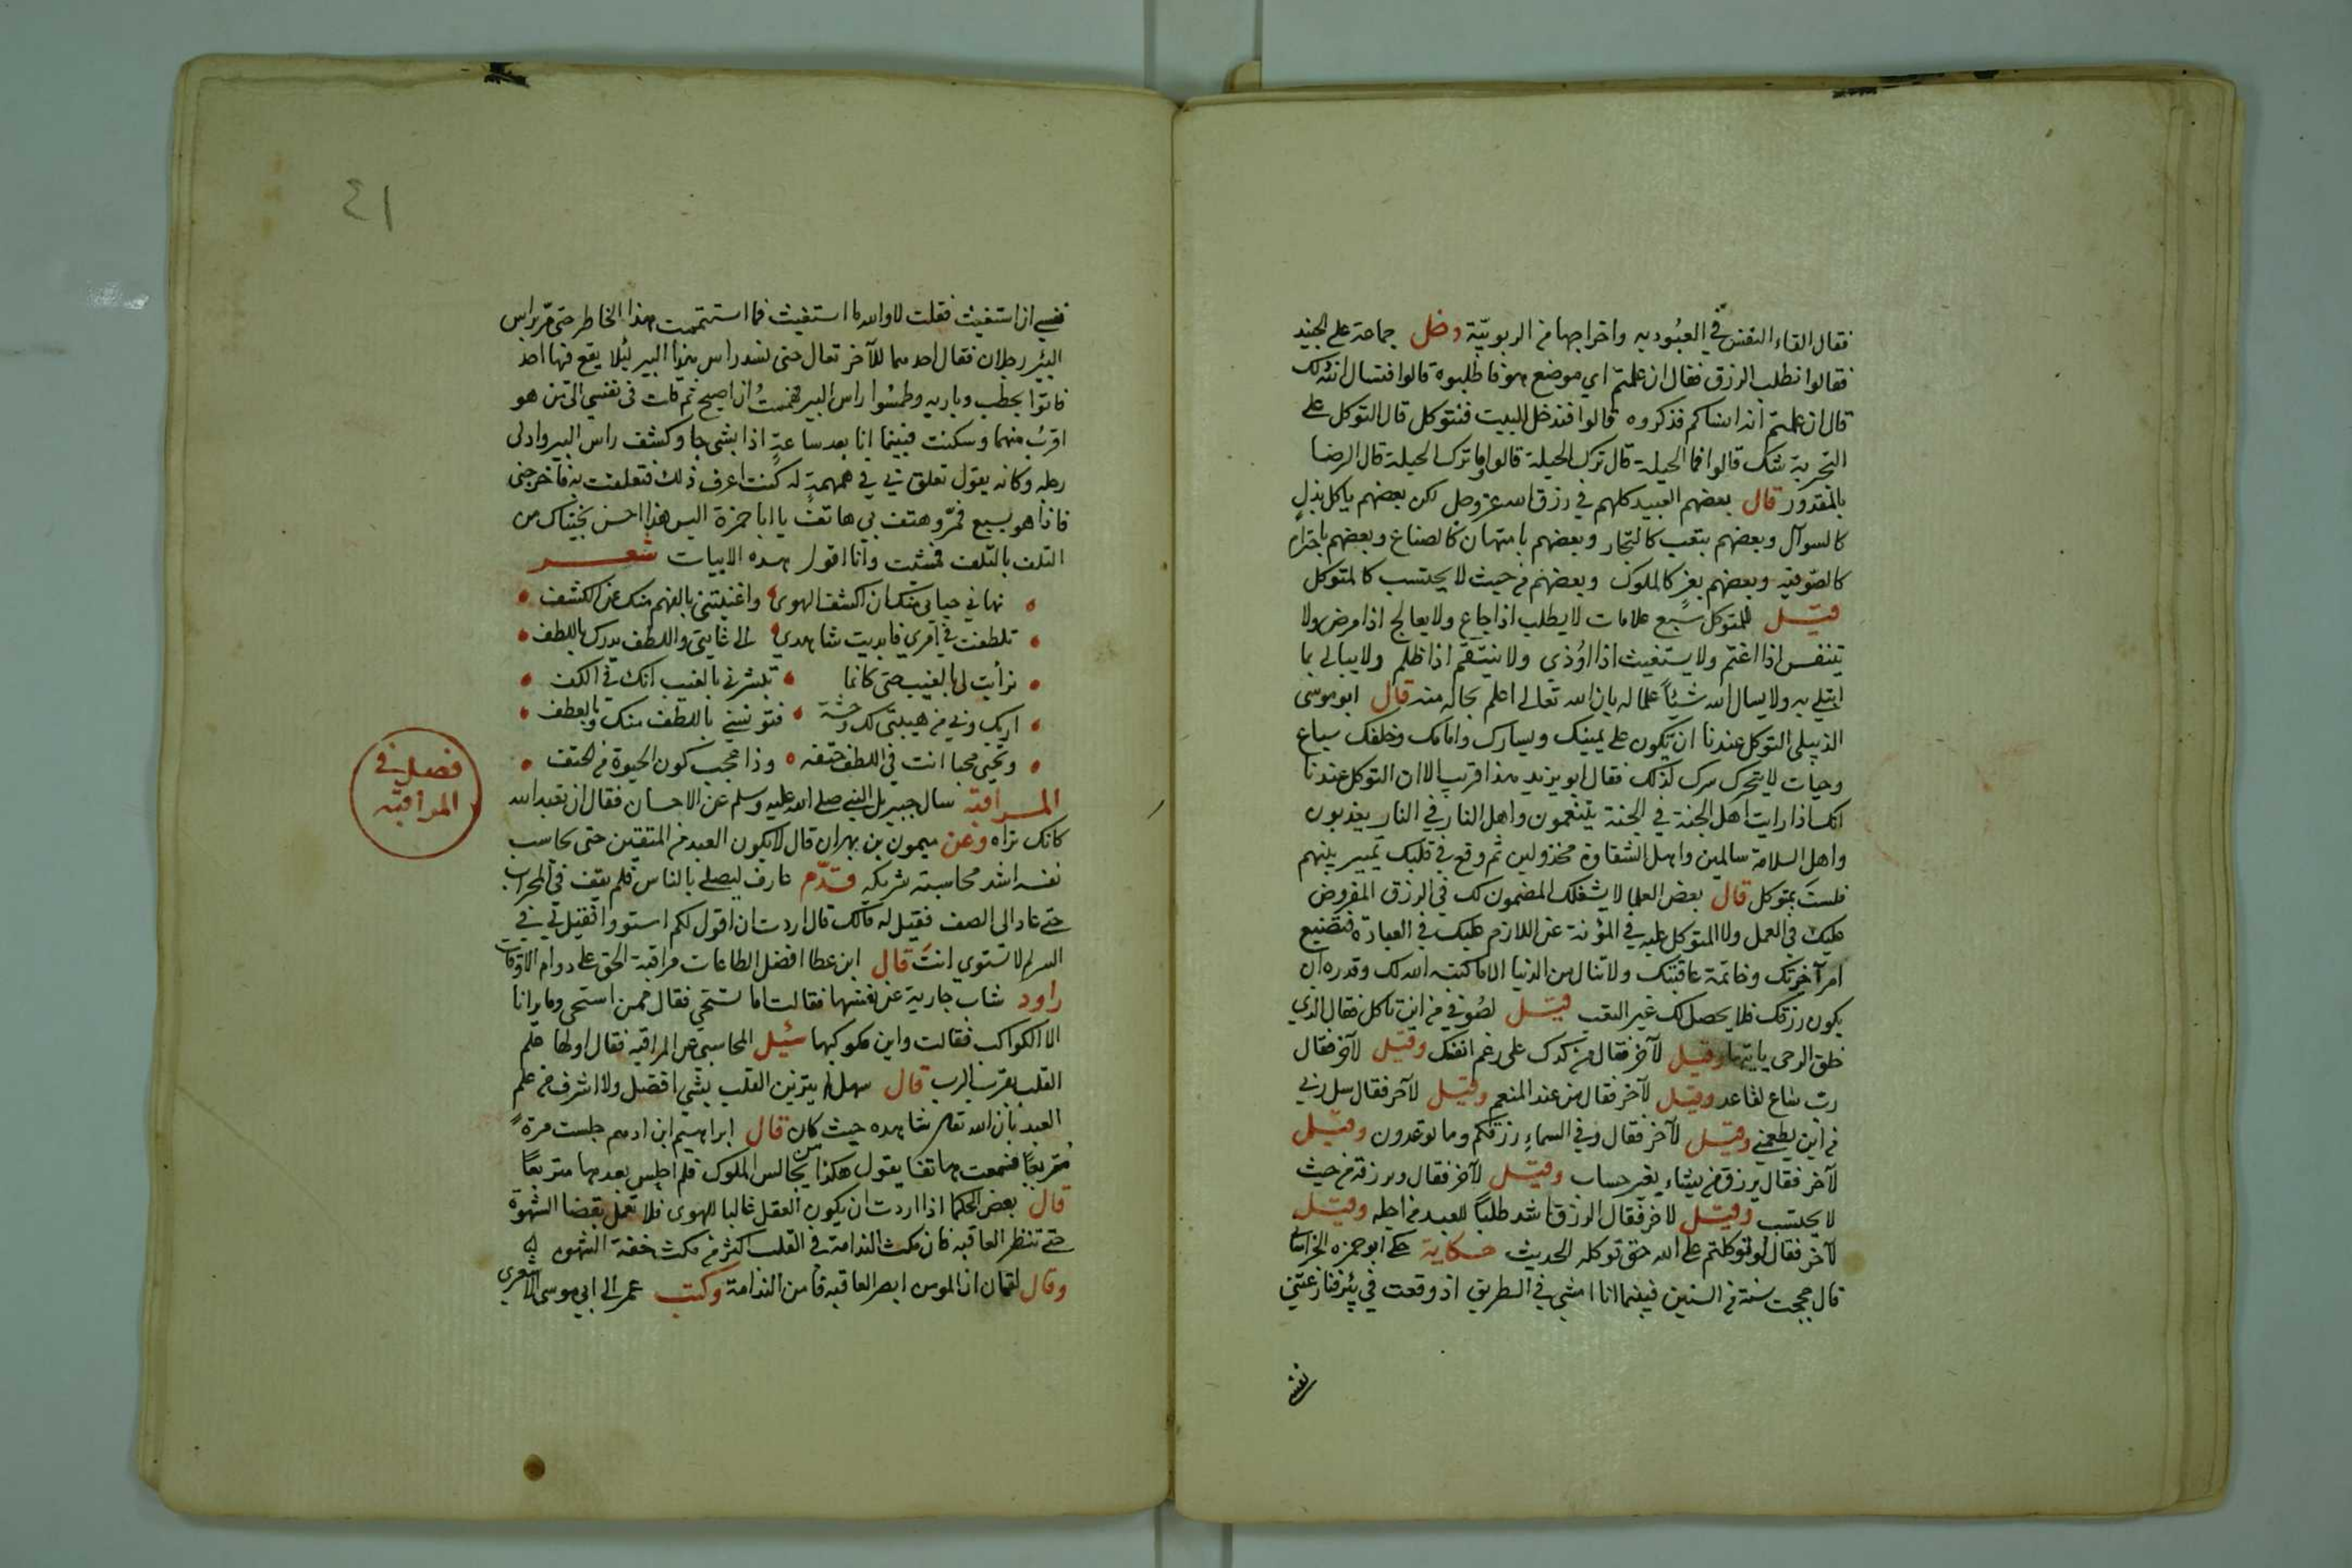 فقال القاء النفس في العبودية واخراجها من الربوبية دخل جماعة على الجنيد
فقالوا نطلب الرزق فقال ان علمتم اي موضع هو فاطلبوه قالوا فنسال الله ذلك
قال ان علمتم انه ينساكم فذكروه قالوا فندخل البيت فنتوكل قال التوكل على
التجربة شك قالوا فما الحيلة قال ترك الحيلة قالوا وما ترك الحيلة قال الرضا
بالمقدور قال بعضهم العبيد كلهم في رزق الله عز وجل لكن بعضهم ياكل بذل
كالسوآل وبعضهم بتعب كالتجار وبعضهم بامتهان كالصناع وبعضهم باحترام
كالصوفيه وبعضهم بعز كالملوك وبعضهم من حيث لا يحتسب كالمتوكل
قيل للمتوكل سبع علامات لا يطلب اذا جاع ولا يعالج اذا مرض ولا
يتنفس اذا اغتم ولا يستغيث اذا اوذي ولا ينتقم اذا ظلم ولا يبالي بما
ابتلي به ولا يسال الله شيئاً علما له بان الله تعالى اعلم بحاله منه قال ابو موسى
الدبيلي التوكل عندنا ان يكون على يمينك ويسارك وامامك وخلفك سباع
وحيات لا يتحرك سرك لذلك فقال ابو يزيد هذا قريب الا ان التوكل عندنا
انك اذا رايت اهل الجنة في الجنة يتنعمون واهل النار في النار يعذبون
واهل السلامة سالمين واهل الشقاوة مخذولين ثم وقع في قلبك تمييز بينهم
فلست بمتوكل قال بعض العلما لا يشغلك المضمون لك في الرزق المفروض
عليك في العمل ولا المتوكل عليه في المؤنة عن اللازم عليك في العبادة فتضيع
امر آخرتك وخاتمة عاقبتك ولا تنال من الدنيا الا ما كتبه الله لك وقدره ان
يكون رزقك فلا يحصل لك غير التعب قيل لصوفي من اين تاكل فقال الذي
خلق الرحى ياتيها وقيل لآخر فقال من كدك على رغم انفك وقيل لآخر فقال
رب ساع لقاعد وقيل لآخر فقال من عند المنعم وقيل لآخر فقال سل ربي
من اين يطعمني وقيل لآخر فقال وفي السماء رزقكم وما توعدون وقيل
لآخر فقال يرزق من يشاء بغير حساب وقيل لآخر فقال ويرزقه من حيث
لا يحتسب وقيل لاخر فقال الرزق اشد طلباً للعبد من اجله وقيل
لآخر فقال لو توكلتم على الله حق توكله الحديث حكاية حكي ابو حمزه الخراساني
قال حججت سنة من السنين فبينما انا امشي في الطريق اذ وقعت في بئر فنازعتني
نفسي
٤١
نفسي ان استغيث فقلت لا والله لا استغيث فما استتممت هذا الخاطر حتى مر براس
البئر رجلان فقال احدهما للآخر تعال حتى نسد راس هذا البير لئلا يقع فيها احد
فاتوا بحطب وباريه وطمسوا راس البير فهممت ان اصيح ثم قلت في نفسي الى من هو
اقرب منهما وسكنت فبينما انا بعد ساعة اذا بشي جا وكشف راس البير وادلى
رجله وكانه يقول تعلق بي في همهمة له كنت اعرف ذلك فتعلقت به فاخرجني
فاذا هو سبع فمر وهتف بي هاتف يا ابا حمزة اليس هذا احسن نجيناك من
التلف بالتلف فمشيت وانا اقول هذه الابيات شعر
نهاني حيائي منك ان اكشف الهوى واغنيتني بالفهم منك عن الكشف
تلطفت في امري فابديت شاهدي الى غائبي واللطف يدرك باللطف
تراءيت لي بالغيب حتى كانما تبشرني بالغيب انك في الكف
اراك وبي من هيبتي لك وحشة فتونسني باللطف منك وبالعطف
وتحيي محبا انت في اللطف حتفه وذا عجب كون الحيوة من الحتف
فصل في
المراقبة
المراقبة سال جبريل النبي صلى الله عليه وسلم عن الاحسان فقال ان تعبد الله
كانك تراه وعن ميمون بن مهران قال لا يكون العبد من المتقين حتى يحاسب
نفسه اشد محاسبته شريكه قدّم عارف ليصلي بالناس فلم يقف في المحراب
حتى عاد الى الصف فقيل له مالك قال اردت ان اقول لكم استووا فقيل لي في
السر لم لا تستوي انت قال ابن عطا افضل الطاعات مراقبة الحق على دوام الاوقات
راود شاب جارية عن نفسها فقالت اما تستحي فقال ممن استحي وما يرانا
الا الكواكب فقالت واين مكوكبها سئل المحاسبي عن المراقبه فقال اولها علم
القلب بقرب الرب قال سهل لم يتزين القلب بشي افضل ولا اشرف من علم
العبد بان الله تعالى شاهده حيث كان قال ابراهيم ابن ادهم جلست مرة
متربعاً فسمعت هاتفا يقول هكذا يجالس الملوك فلم اجلس بعدها متربعاً
قال بعض الحكما اذا اردت ان يكون العقل غالبا للهوى فلا تعمل بقضا الشهوة
حتى تنظر العاقبه فان مكث الندامة في القلب اكثر من مكث خفة الشهوه
وقال لقمان ان المومن ابصر العاقبه فامن الندامة وكتب عمر الى ابي موسى الاشعري